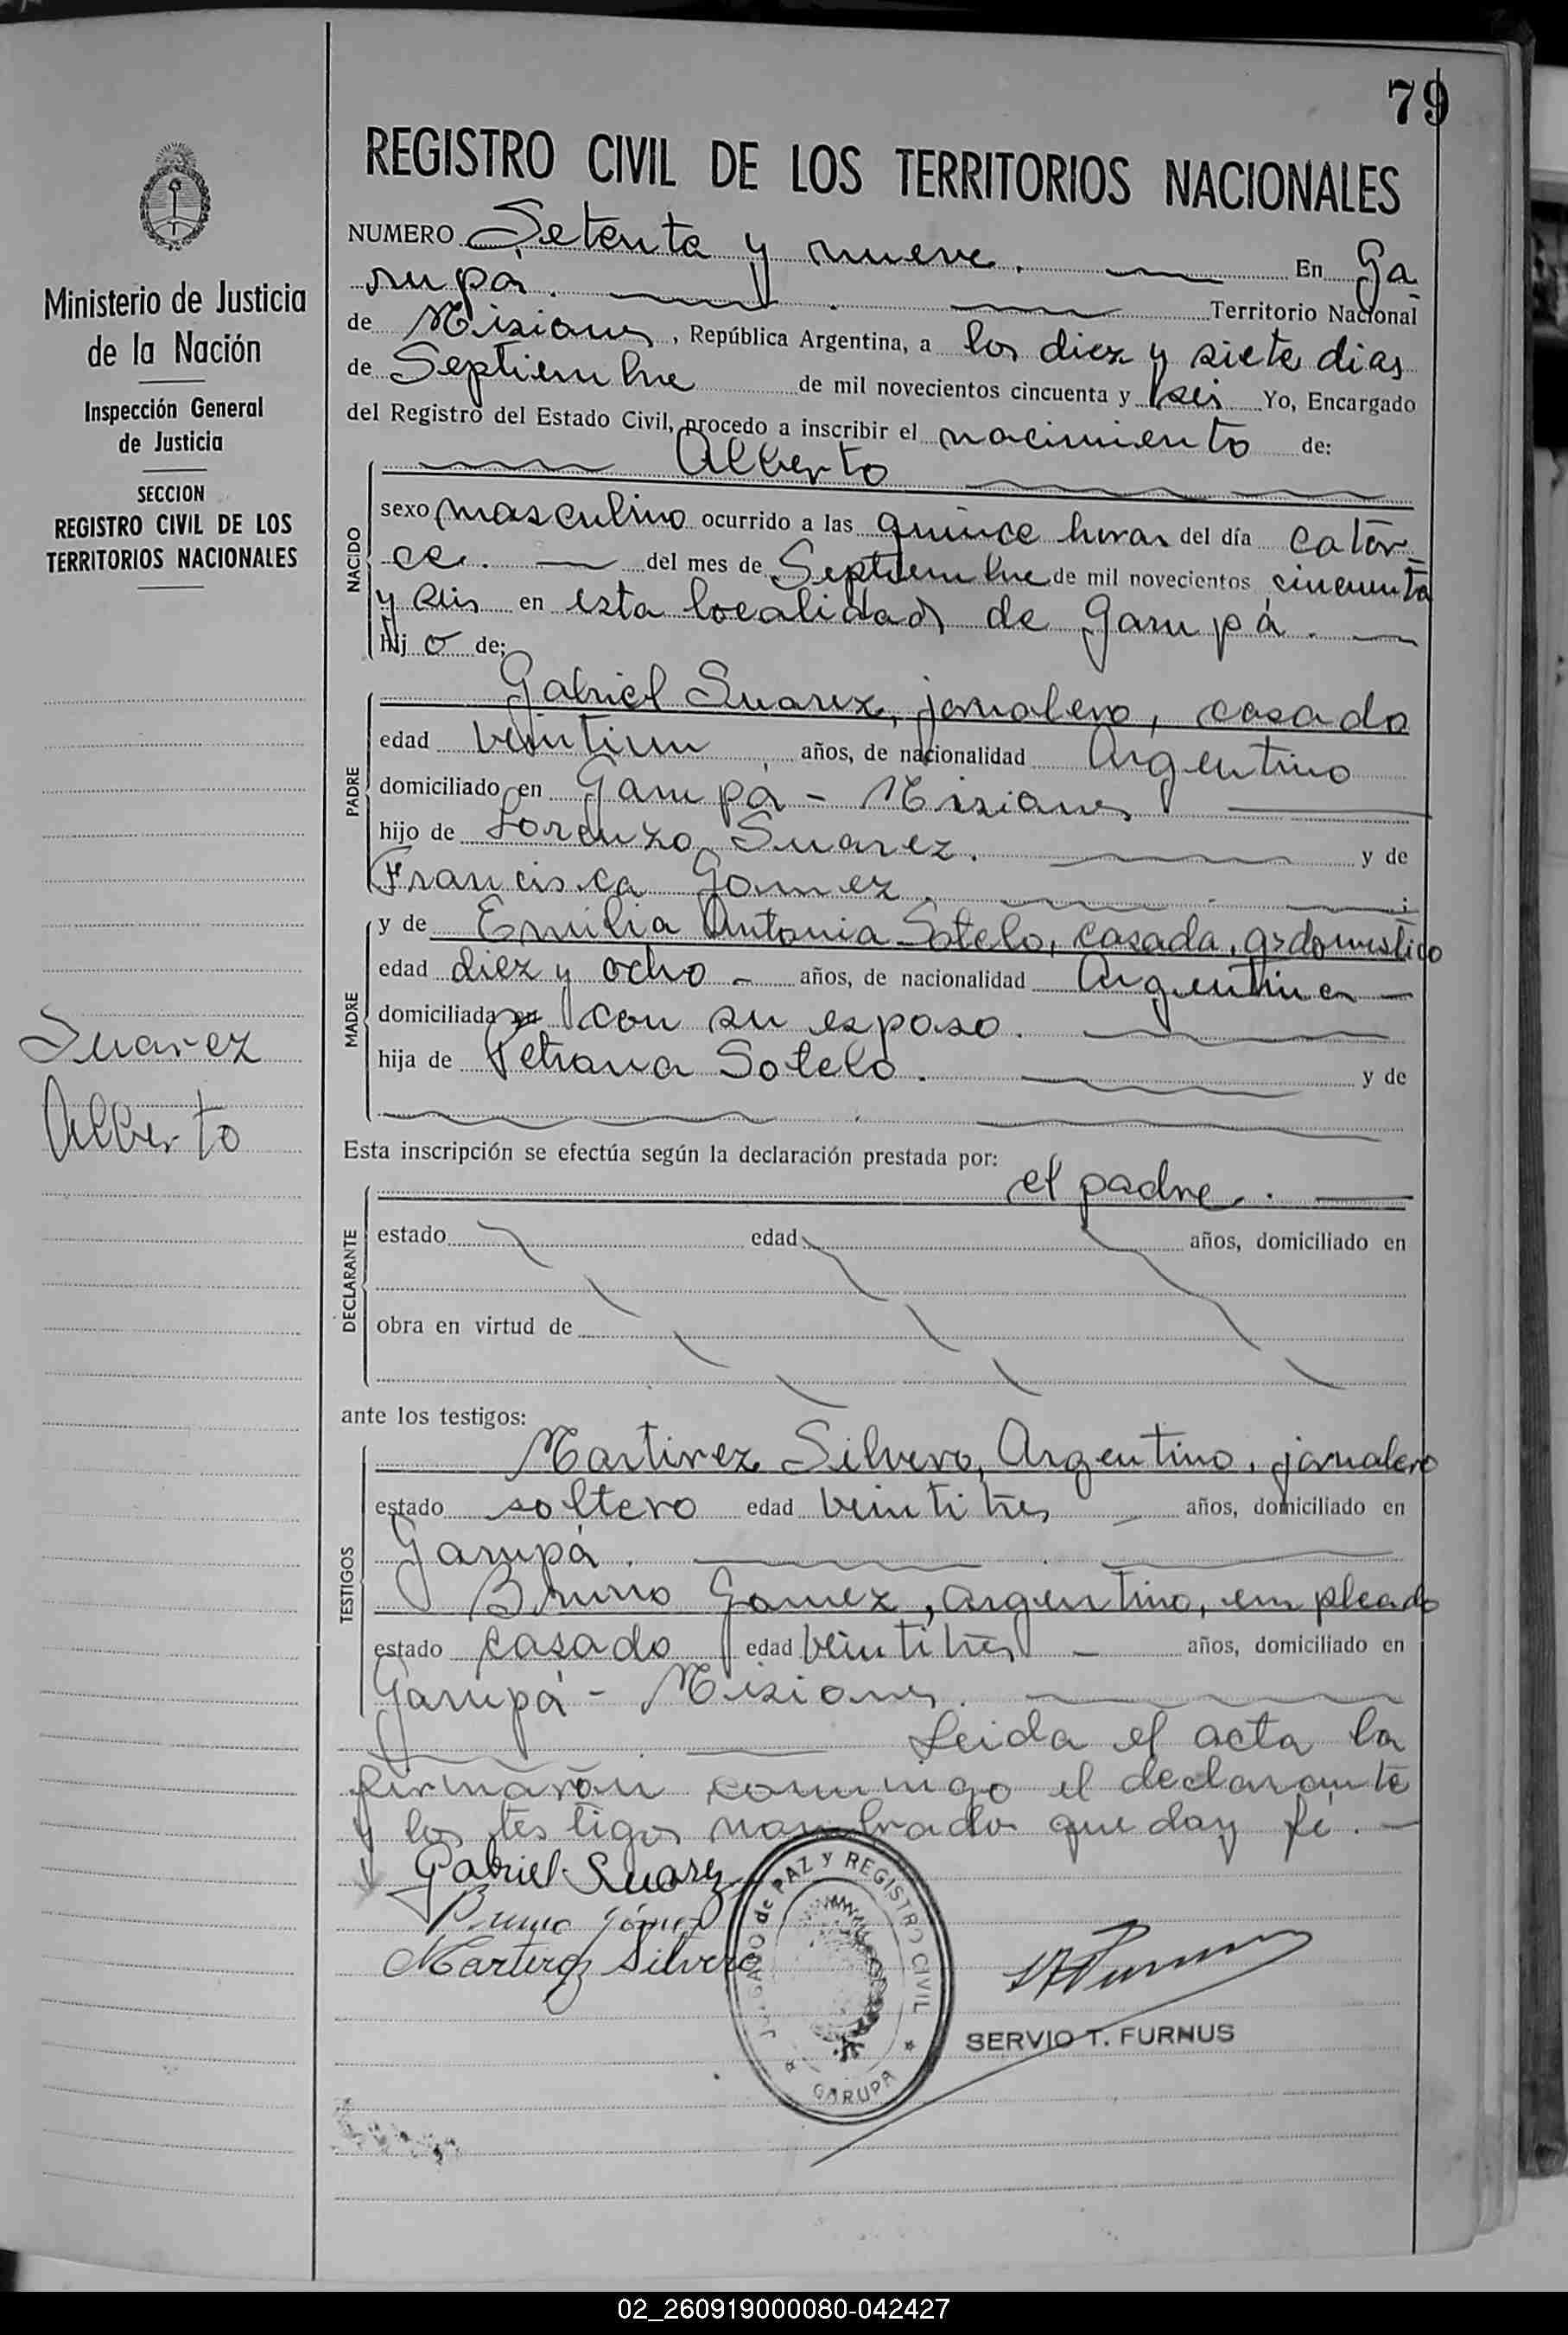 79
REGISTRO CIVIL DE LOS TERRITORIOS NACIONALES
Ministerio de Justicia
de la Nación
Inspección General
de Justicia
SECCION
REGISTRO CIVIL DE LOS
TERRITORIOS NACIONALES
Suarez
Alberto
NUMERO Setenta y nueve. En Ga
rupá. Territorio Nacional
de Misiones, República Argentina, a los diez y siete dias
de Septiembre de mil novecientos cincuenta y seis Yo, Encargado
del Registro del Estado Civil, procedo a inscribir el nacimiento de:
Alberto
NACIDO
sexo masculino ocurrido a las quince horas del día cator
ce. del mes de Septiembre de mil novecientos cincuenta
y seis en esta localidad de Garupá.
hij o de:
PADRE
Gabriel Suarez, jornalero, casado
edad veintiun años, de nacionalidad Argentino
domiciliado en Garupá - Misiones
hijo de Lorenzo Suarez. y de
Francisca Gomez. ;
MADRE
y de Emilia Antonia Sotelo, casada, qzdomestico
edad diez y ocho - años, de nacionalidad Argentina -
domiciliada en con su esposo.
hija de Petrona Sotelo. y de
Esta inscripción se efectúa según la declaración prestada por:
el padre.
DECLARANTE
estado edad años, domiciliado en
obra en virtud de
ante los testigos:
TESTIGOS
Martinez Silvero, Argentino, jornalero
estado soltero edad veintitres años, domiciliado en
Garupá.
Bruno Gomez, argentino, empleado
estado casado edad veintitres - años, domiciliado en
Garupá - Misiones.
Leida el acta la
firmarón conmigo el declarante
y los testigos nombrados que doy fé. -
Gabriel Suarez
Bruno Gómez
Martinez Silvero
JUZGADO de PAZ y REGISTRO CIVIL
GARUPA
SERVIO T. FURNUS
02_260919000080-042427